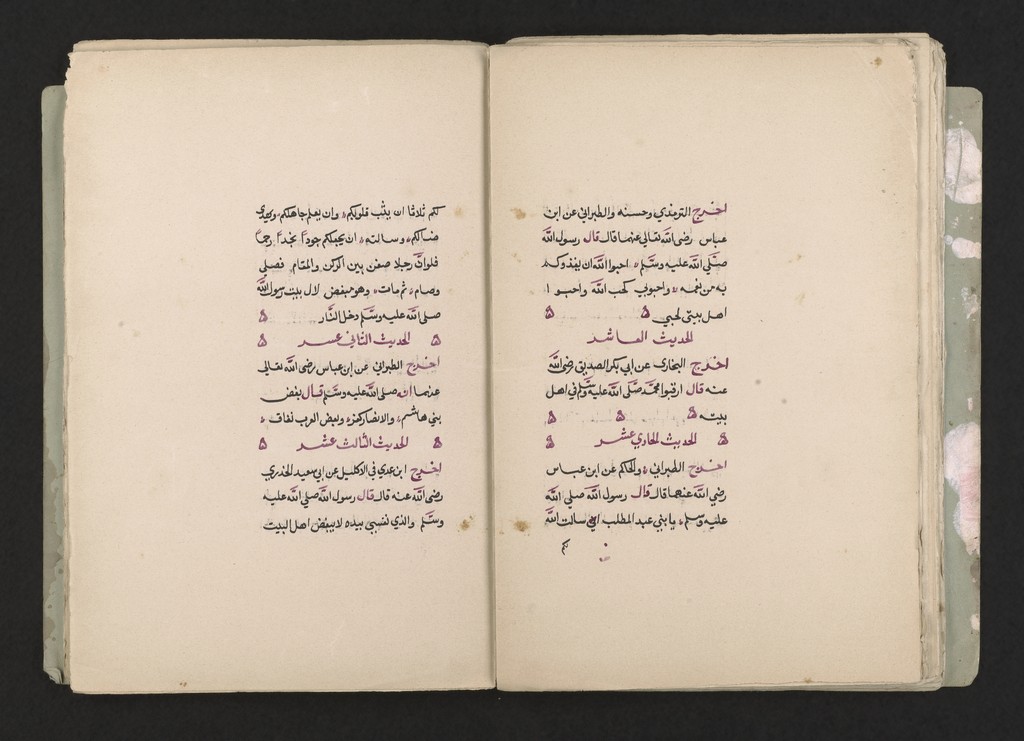 اخرج الترمذي وحسنه والطبراني عن ابن
عباس رضى الله تعالى عنهما قال قال رسول الله
صلى الله عليه وسلم احبوا الله لما يغذوكم
به من نعمه واحبوني لحب الله واحبوا
اهل بيتى لحبي
الحديث العاشر
اخرج البخارى عن ابي بكر الصديق رضى الله
عنه قال ارقبوا محمد صلى الله عليه وسلم في اهل
بيته
الحديث الحادي عشر
اخرج الطبراني والحاكم عن ابن عباس
رضي الله عنهما قال قال رسول الله صلى الله
عليه وسلم يا بني عبد المطلب اني سالت الله
لكم
لكم ثلاثا ان يثبت قلوبكم وان يعلم جاهلكم ويهدى
ضالكم وسالته ان يجعلكم جوداً نجداً رحما
فلو ان رجلا صفن بين الركن والمقام فصلى
وصام ثم مات وهو مبغض لال بيت رسول الله
صلى الله عليه وسلم دخل النار
الحديث الثاني عشر
اخرج الطبراني عن ابن عباس رضى الله تعالى
عنهما ان صلى الله عليه وسلم قال بغض
بني هاشم والانصار كفر وبغض العرب نفاق
الحديث الثالث عشر
اخرج ابن عدي في الاكليل عن ابي سعيد الخدري
رضى الله عنه قال قال رسول الله صلى الله عليه
وسلم والذي نفسي بيده لا يبغض اهل البيت